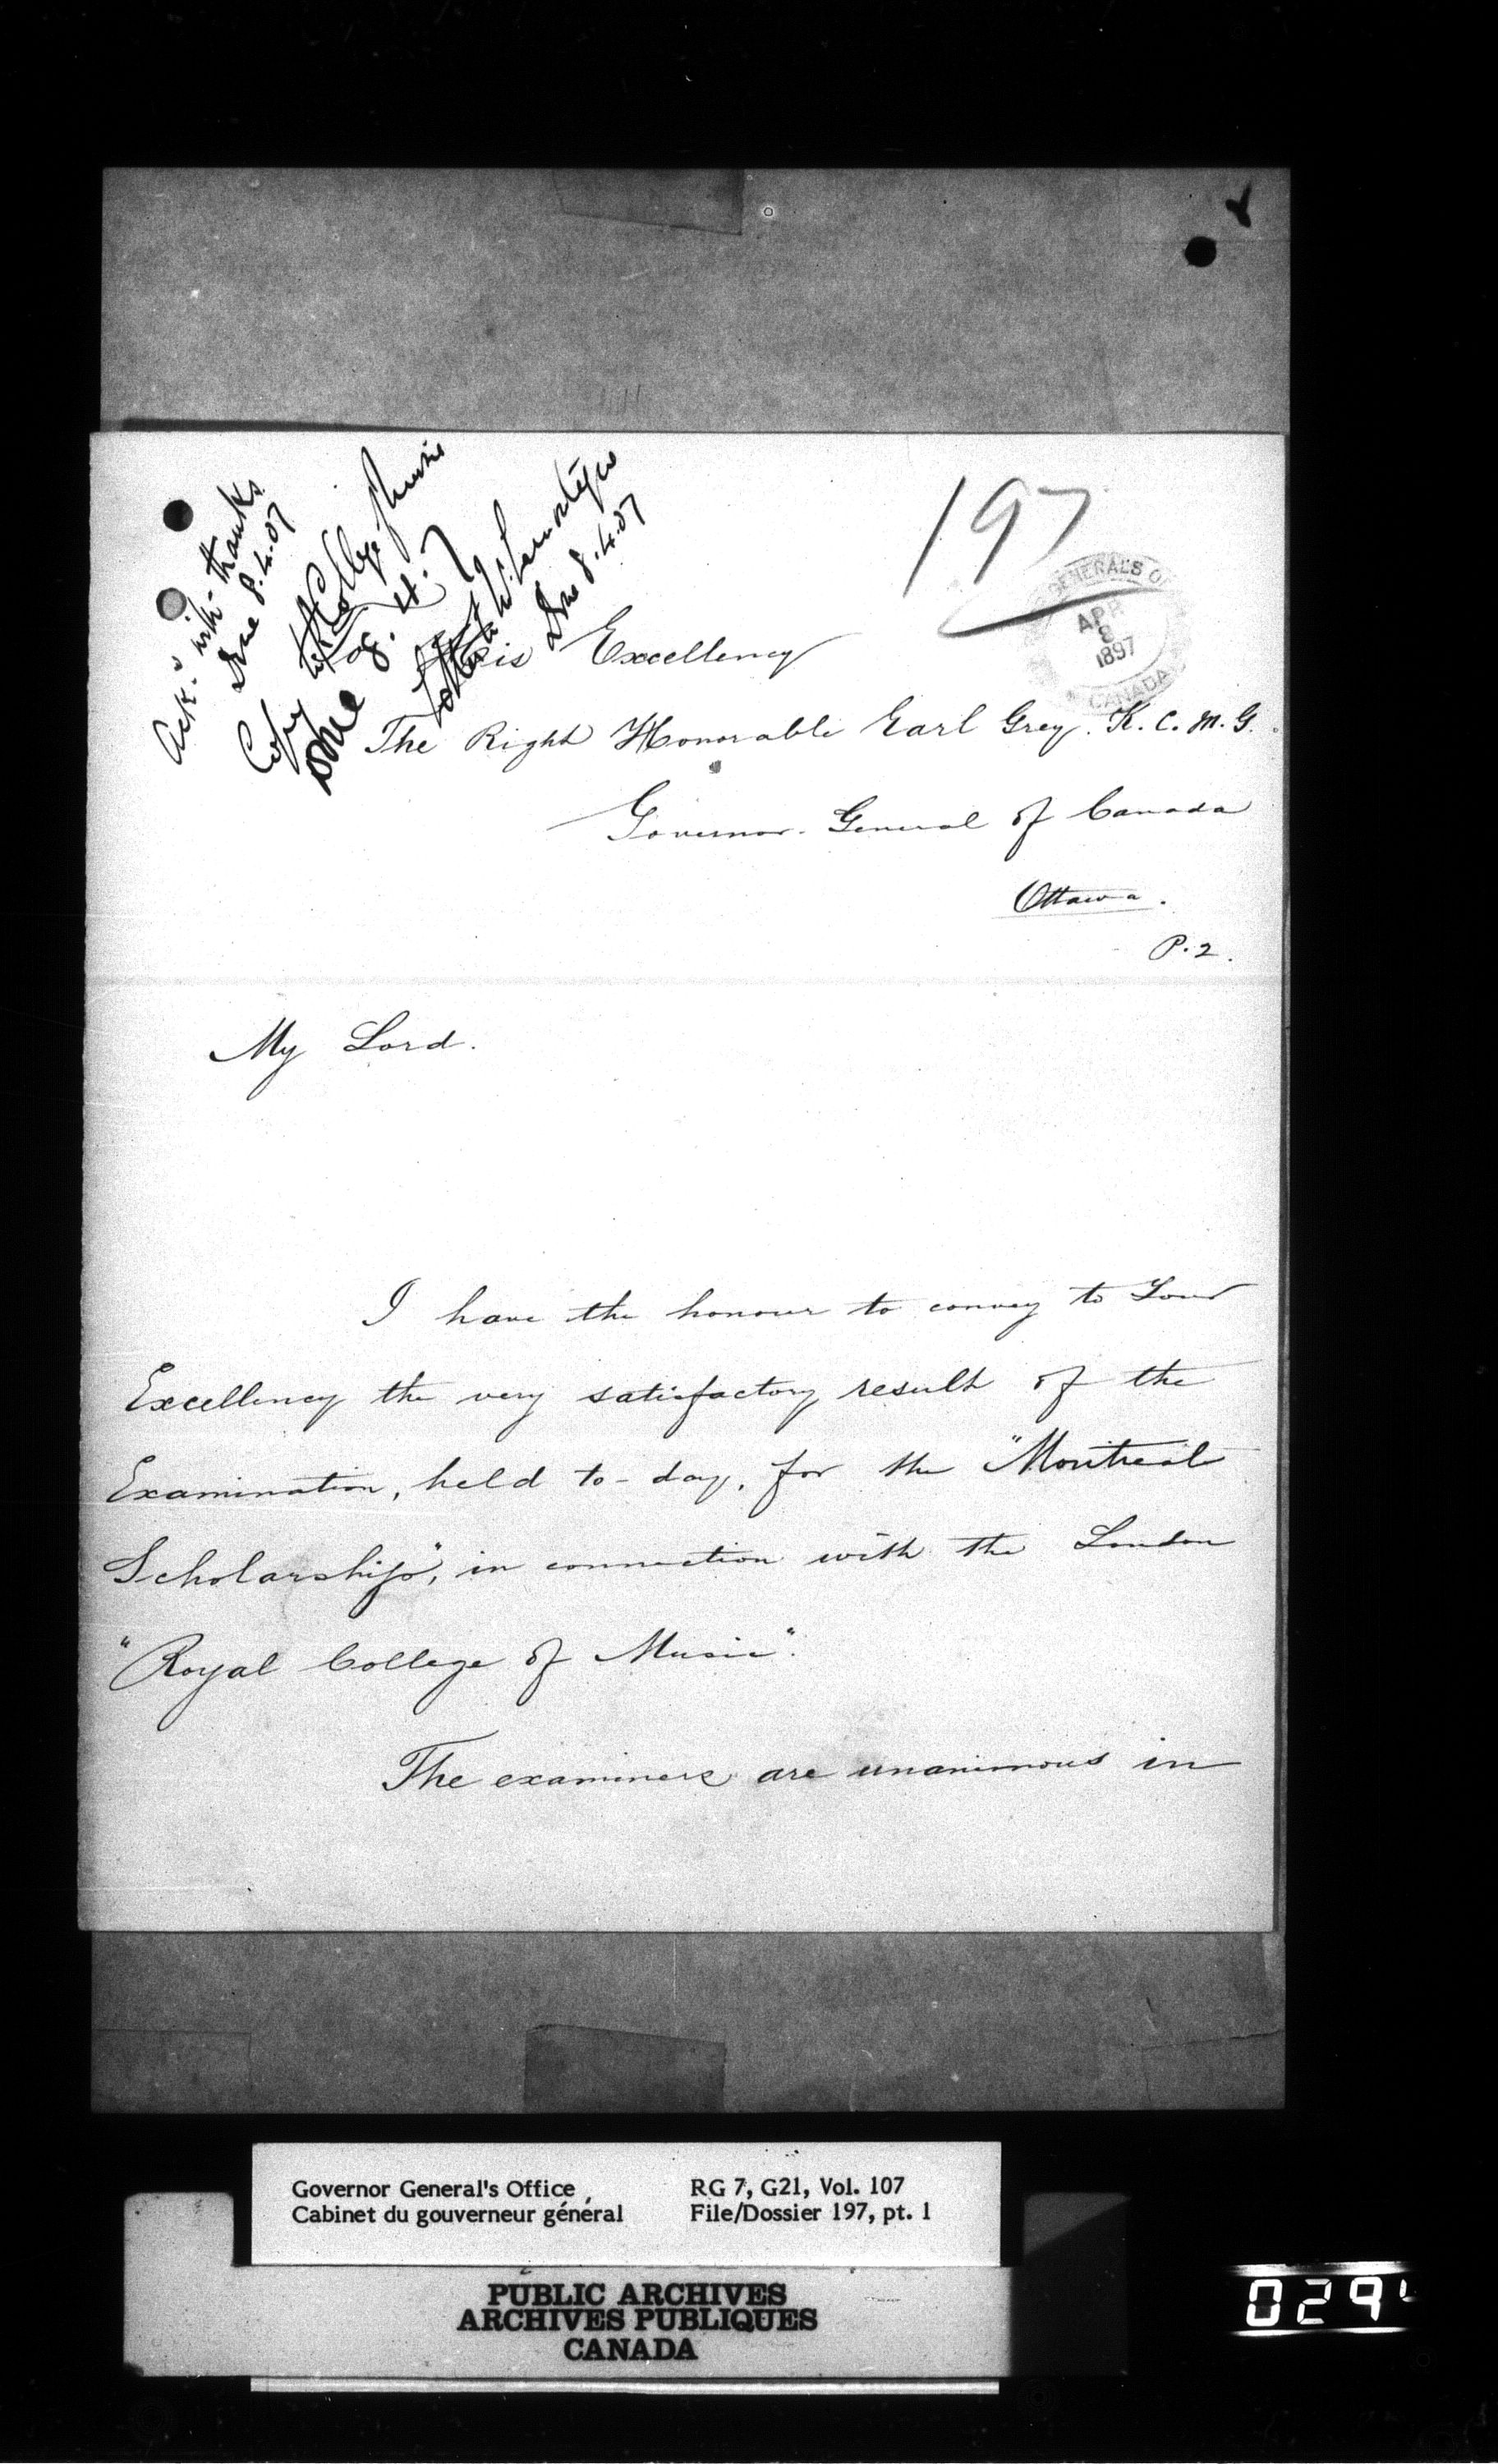 Ack. with thanks
Done 8.4.07
Copy College Music
Done 8.4.7
Done 8.4.07
197
GENERAL'S
APR
8
1897
CANADA
His Excellency
The Right Honorable Earl Grey. K.C.M.G.
Governor-General of Canada
Ottawa.
P.2.
My Lord.
I have the honour to convey to Your
Excellency the very satisfactory result of the
Examination, held to-day, for the "Montreal
Scholarship", in connection with the London
"Royal College of Music".
The examiners are unanimous in
Governor General's Office
Cabinet du gouverneur général
RG 7, G21, Vol. 107
File/Dossier 197, pt. 1
PUBLIC ARCHIVES
ARCHIVES PUBLIQUES
CANADA
029